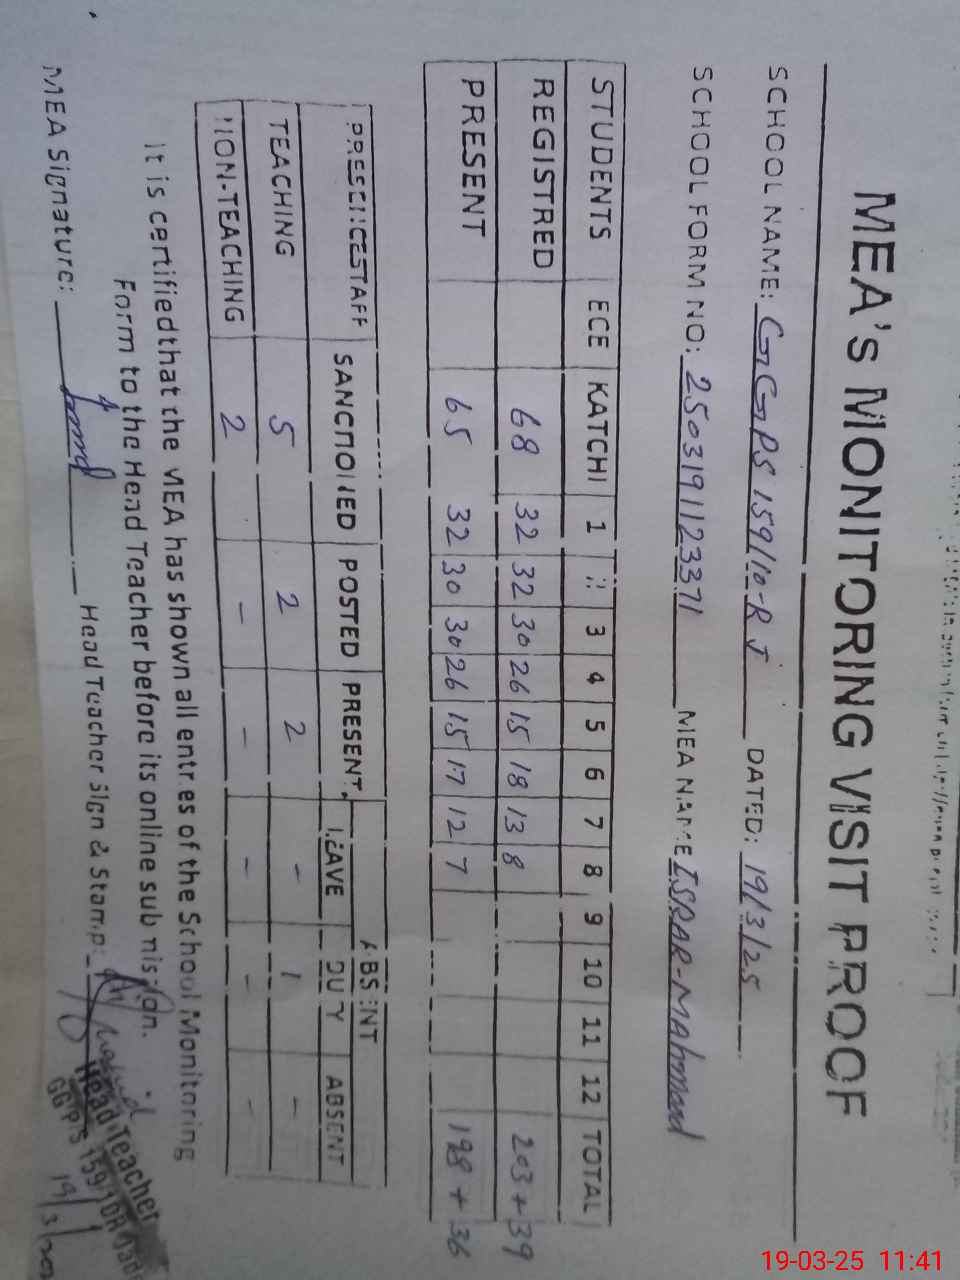 MEA's MONITORING VISIT PROOF
SCHOOL NAME: GGPS 159/10-R J DATED: 19/3/25
SCHOOL FORM NO: 2503191123371 MEA NAME ISRAR-Mahmood
STUDENTS ECE KATCHI 1 3 4 5 6 7 8 9 10 11 12 TOTAL
REGISTRED 68 32 32 30 26 15 18 13 8 203+39
PRESENT 65 32 30 30 26 15 17 12 7 198+36
ABSENT
PRESENCESTAFF SANCTIONED POSTED PRESENT LEAVE DUTY ABSENT
TEACHING 5 2 2 - 1 -
NON-TEACHING 2 - - - - -
It is certifiedthat the MEA has shown all entries of the School Monitoring
Form to the Head Teacher before its online submission.
MEA Signature: Head Teacher Sign & Stamp:
Head Teacher
GGPS 159/10R
19/3/
19-03-25 11:41